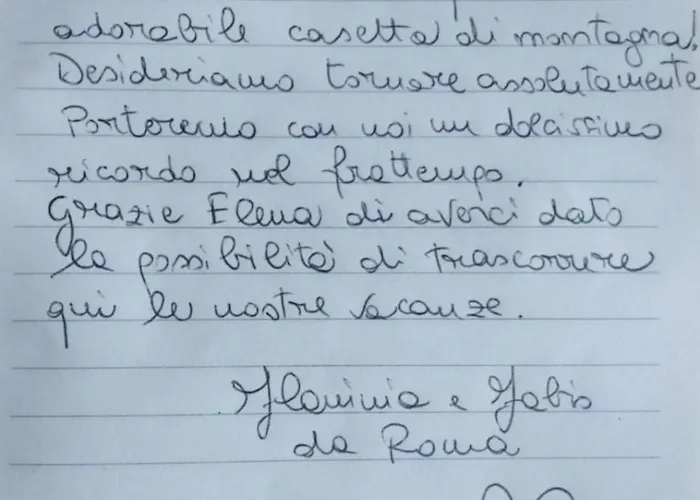 adorabile casetta di montagna!
Desideriamo tornare assolutamente
Porteremo con noi un dolcissimo
ricordo nel frattempo.
Grazie Elena di averci dato
la possibilità di trascorrere
qui le nostre vacanze.
Flaminia e Fabio
da Roma